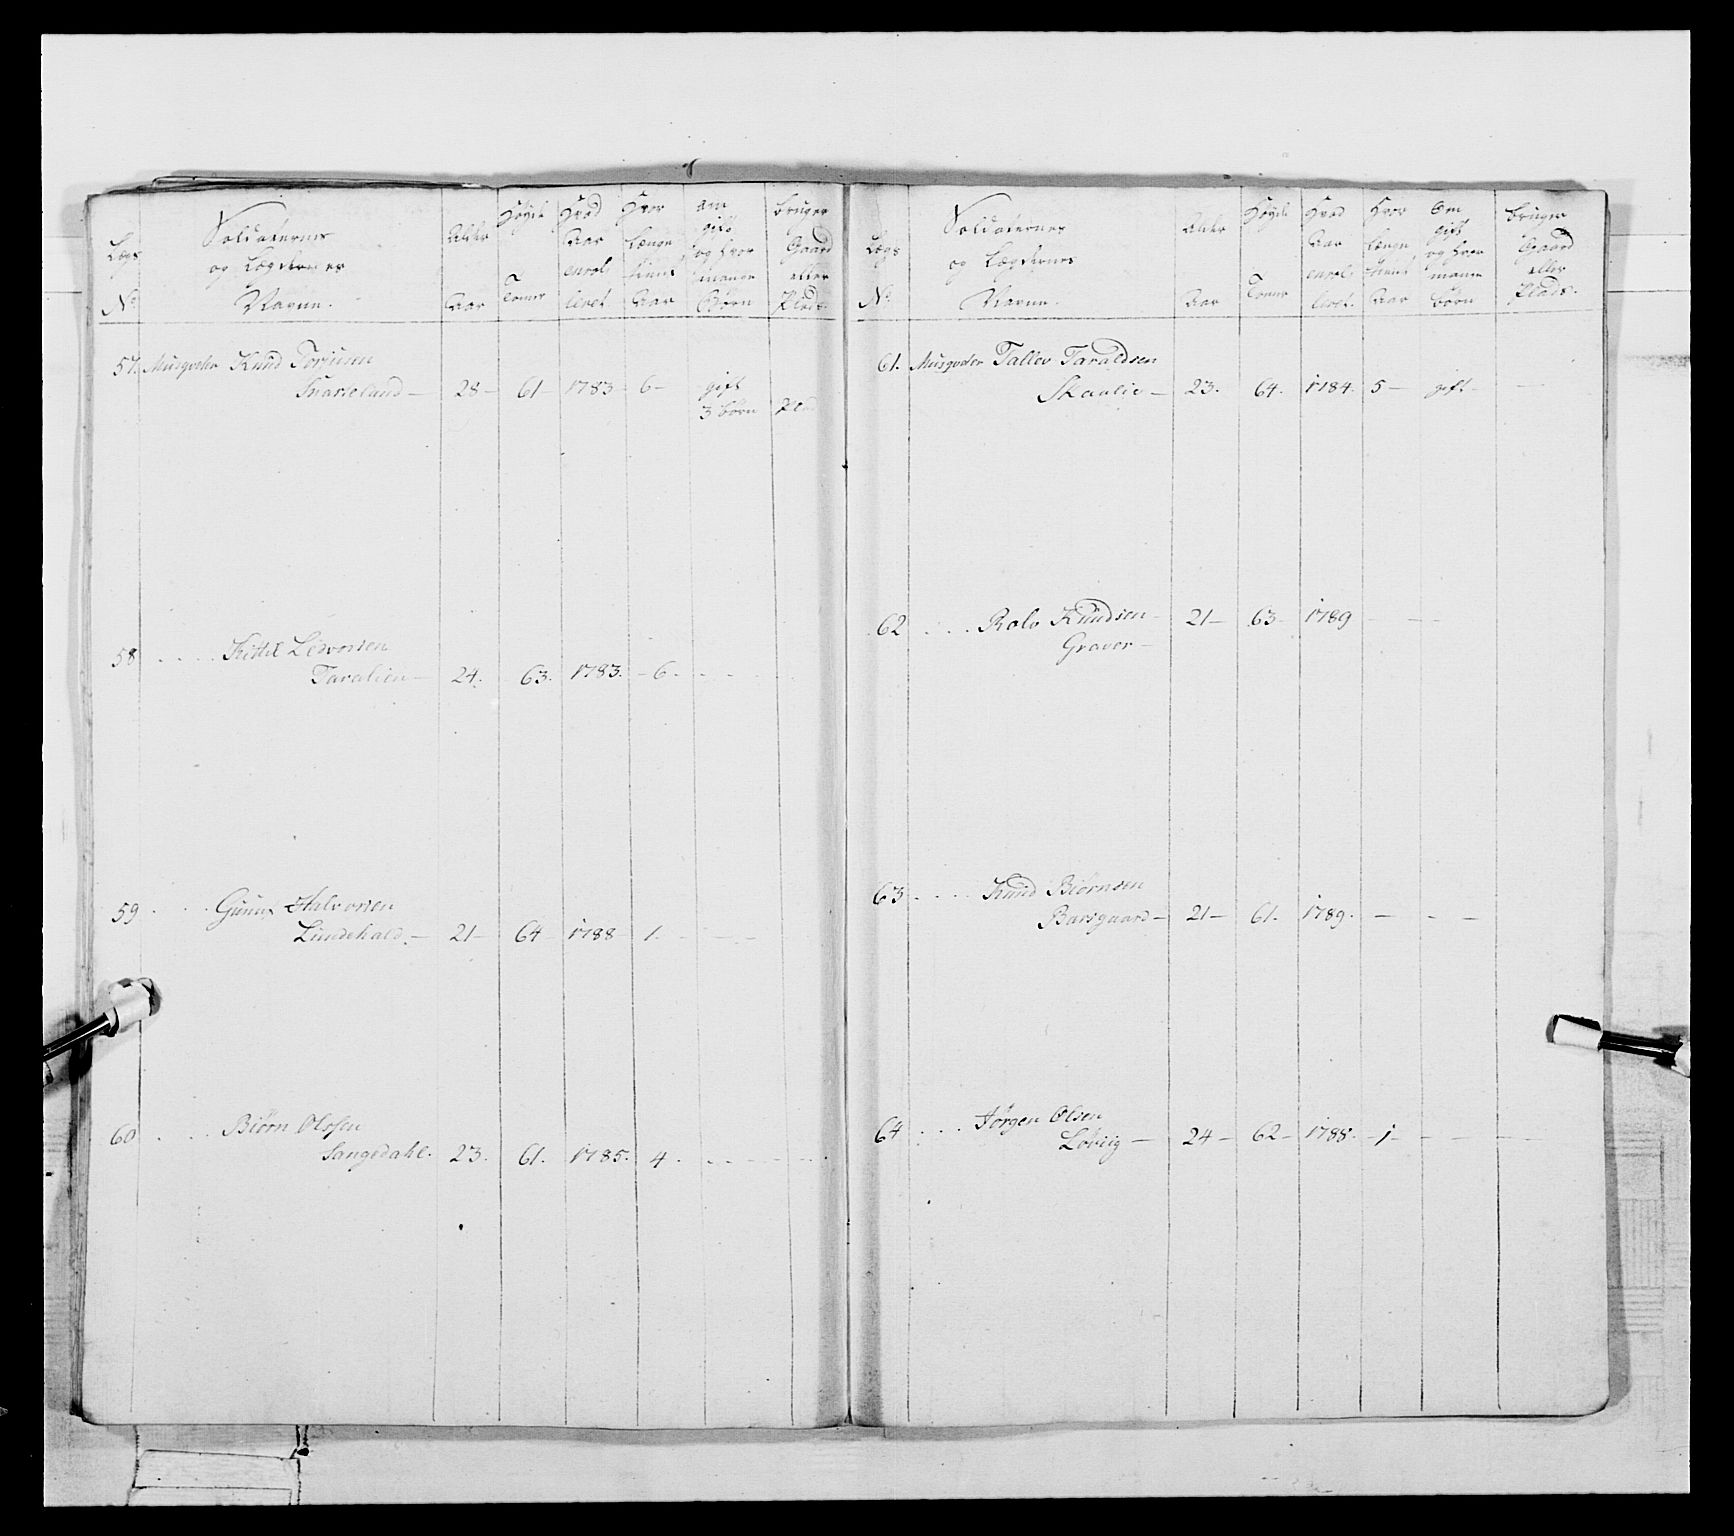 Lægs
No
Soldaternes
og Lægdernes
Navne.
Alder
Aar
Høyde
Tomer
Hvad
Aar
enrol
leret
Hvor
Længe
tient
Aar
Om
gift
og hvor
mange
Børn
bruger
Gaard
eller
Plads.
57. Musqveder Knud Torjusen
Snarteland — 28 — 61 — 1783 — 6 — gift
3 børn Plad
58 . . . . Kittel Ledvorsen
Taralien — 24. 63. 1783. — 6. — — —
59 . . . Gunuf Halvorsen
Lindekald. — 21 — 64 — 1788 — 1. — — —
60 . . . Biørn Olsen
Langedahl. 23. 61. 1785. 4. — — — —
Lægs
No
Soldaternes
og Lægdernes
Navne.
Alder
Aar
Høyde
Tomer
Hvad
Aar
enrol
leret.
Hvor
Længe
tient
Aar
Om
gift
og hvor
mange
børn
bruger
Gaard
eller
Plads.
61. Musqveder Tallev Taraldsen
Skaalie — 23. 64. 1784. 5 — gift — —
62 . . . . Rolv Knudsen — 21 — 63 — 1789 — — —
Graver —
63 . . . . Knud Biørnsen
Barsgaard — 21 — 61. 1789. — — —
64 . . . Jörgen Olsen
Løvlig — 24 — 62 — 1788. — 1 — — — —